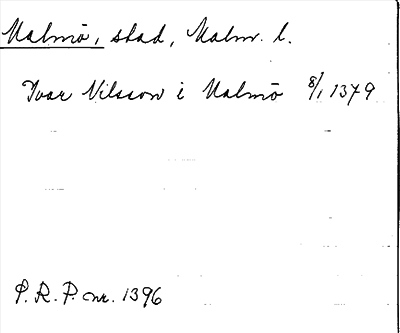 Malmö, stad, Malm. l.
Ivar Nilsson i Malmö 8/1 1379
P.R.P. nr. 1396